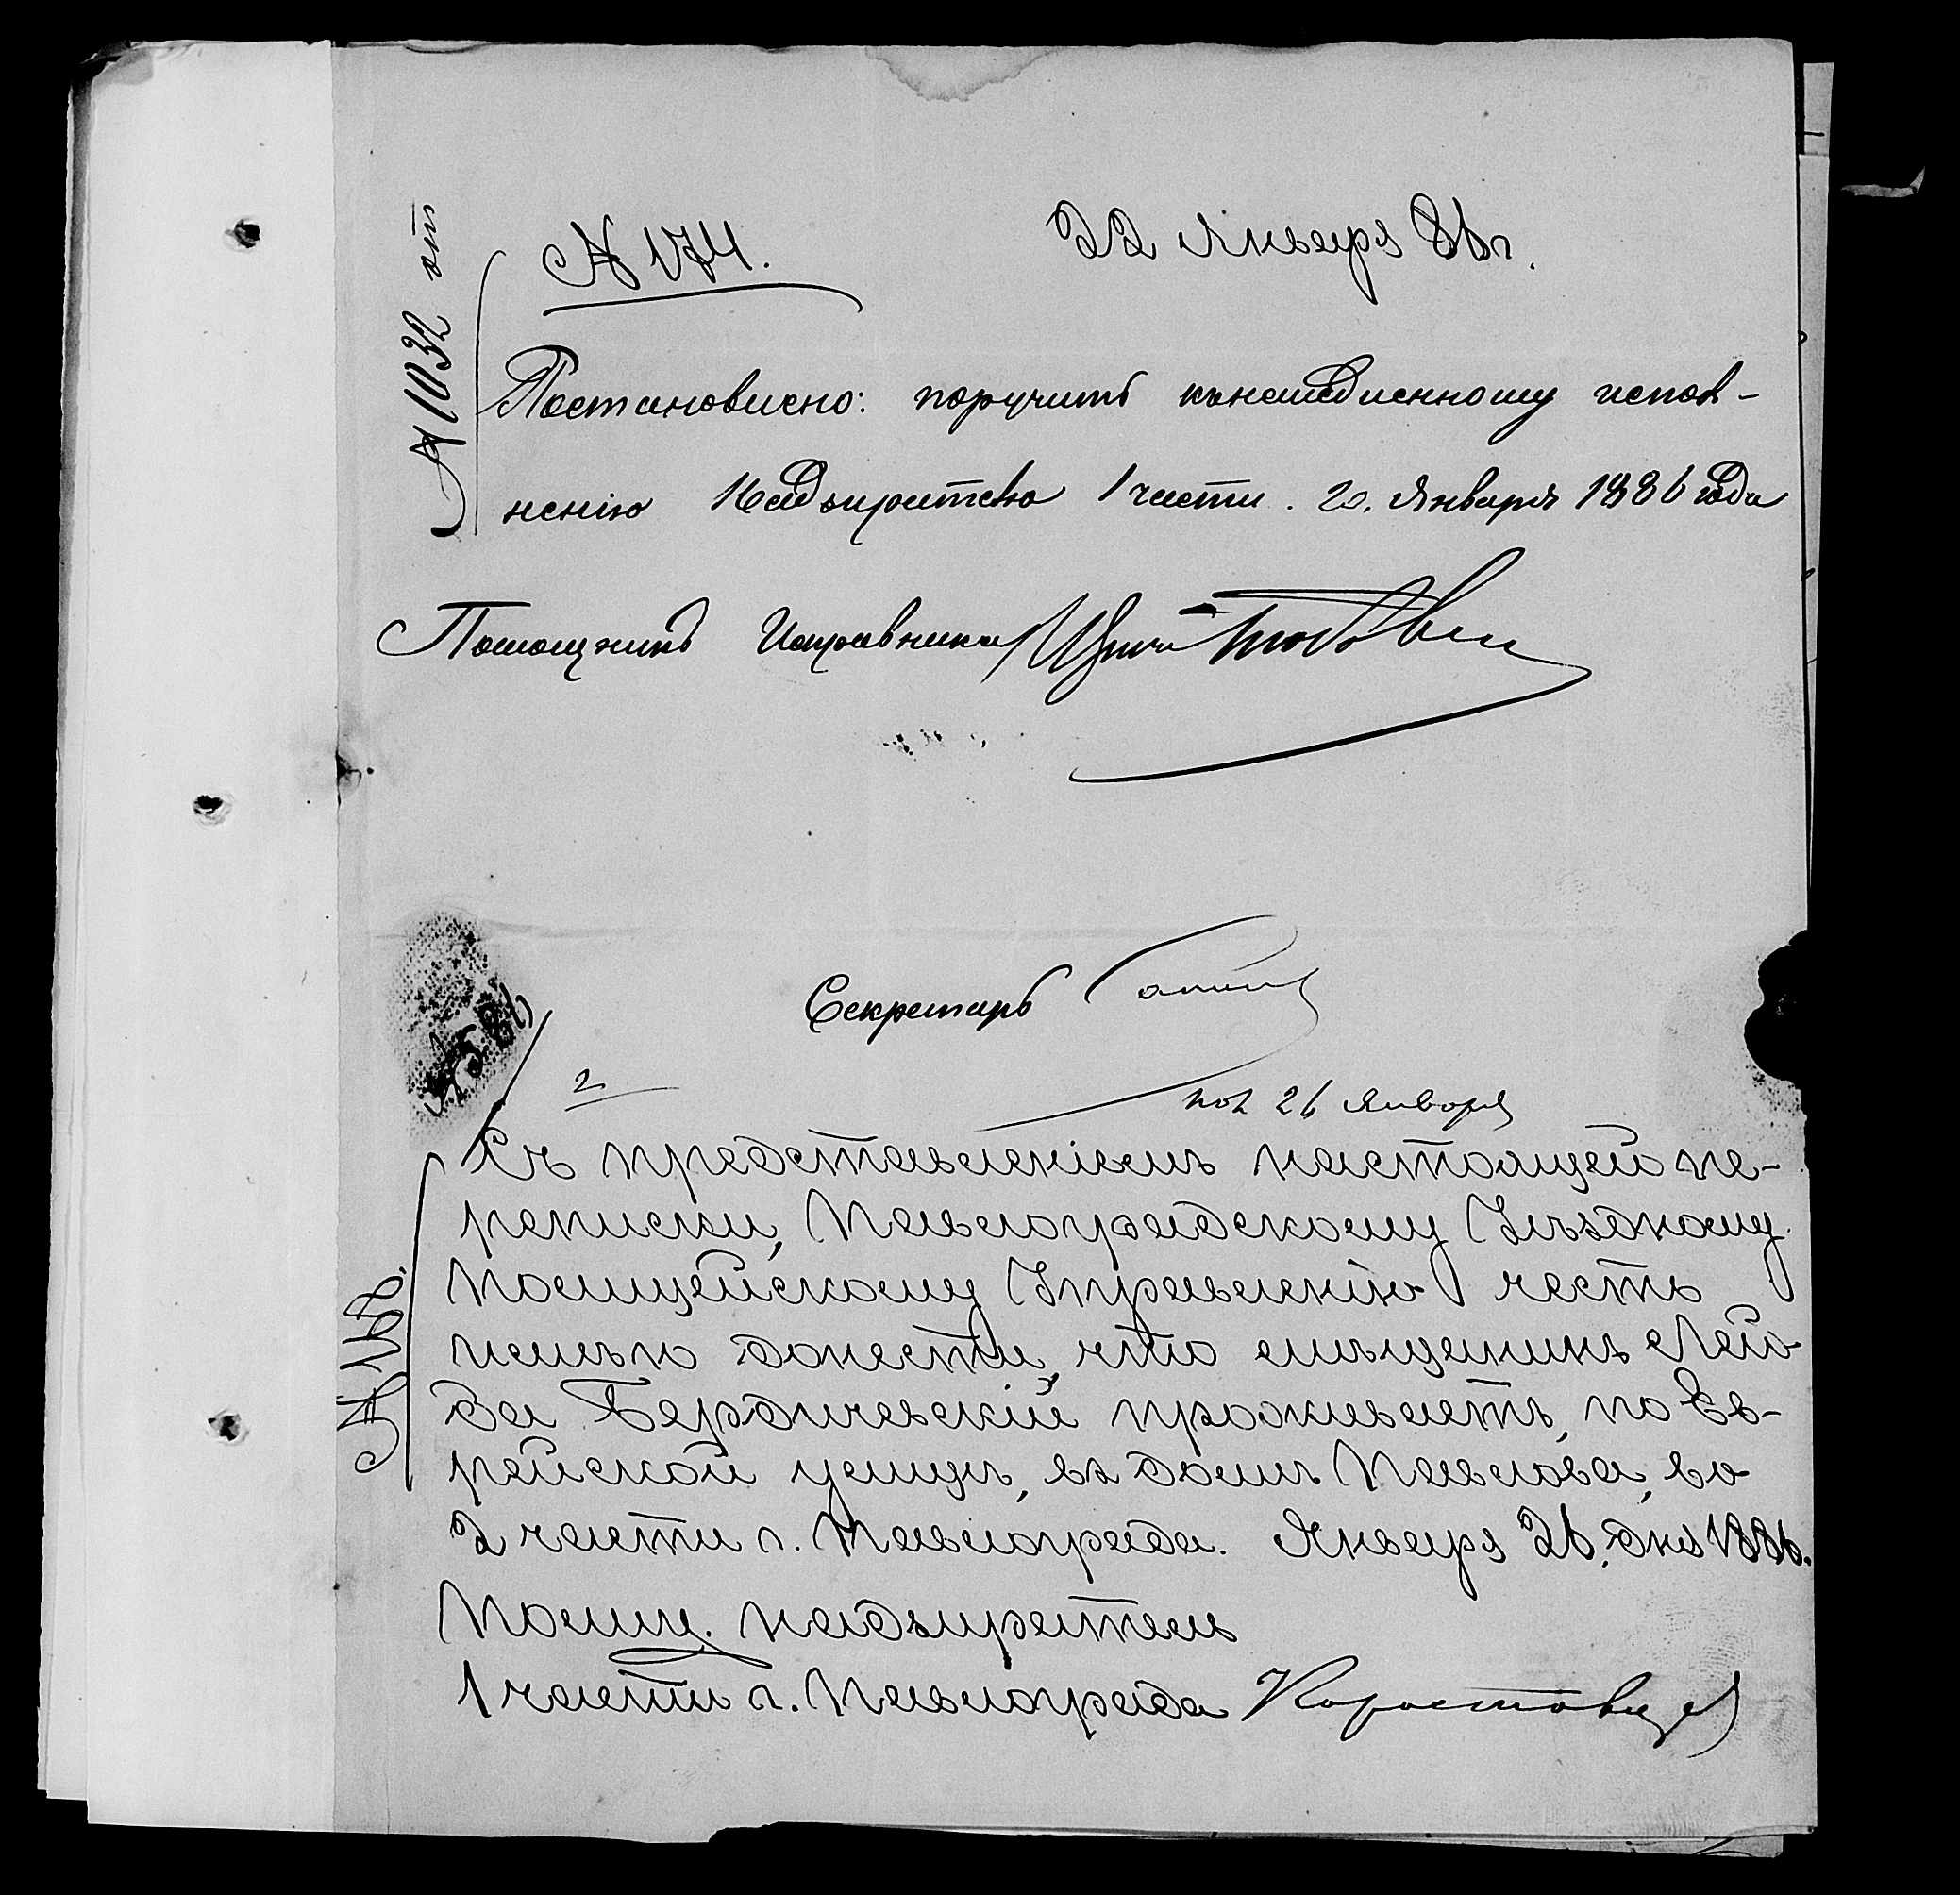 № 174. 22 Января 86 г.
№ 1032 от
Постановлено: поручить къ немедленному испол-
ненію Надзирателю 1 части. 20. Января 1886 года
Помощникъ Исправника
Секретарь
2
пол 26 Января
Съ представленіемъ настоящей пе-
реписки, Павлоградскому Уѣздному
Полицейскому Управленію честь
имѣю донести, что мѣщанинъ Лей-
ба Бердичевскій проживаетъ, по Ев-
рейской улицѣ, въ домѣ Павлова, во
2 части г. Павлограда. Января 26 дня 1886.
№ 168.
Полиц. надзиратель
1 части г. Павлограда Коростовцев